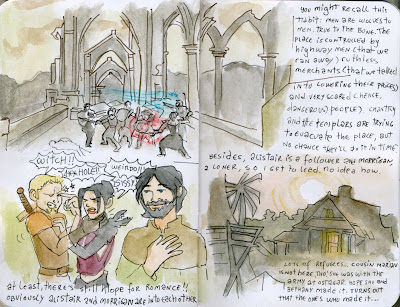 you might recall this
tidbit: men are wolves to
men. true to the bone. the
place is controlled by
highway men (that we
ran away) ruthless
merchants (that we talked
into lowering their prices)
and very scared (hence,
dangerous) people). chantry
and the templars are trying
to evacuate the place, but
no chance they'll do it in time
besides, Alistair is a follower and morrigan
a loner, so I get to lead. no idea how.
witch!!
at least, there's still hope for romance!!
obviously Alistair and morrigan are into each other
lots of refugees... cousin marian
is not here, tho'. she was with the
army at ostagar. hope she and
bethany made it. turns out
that the ones who made it...